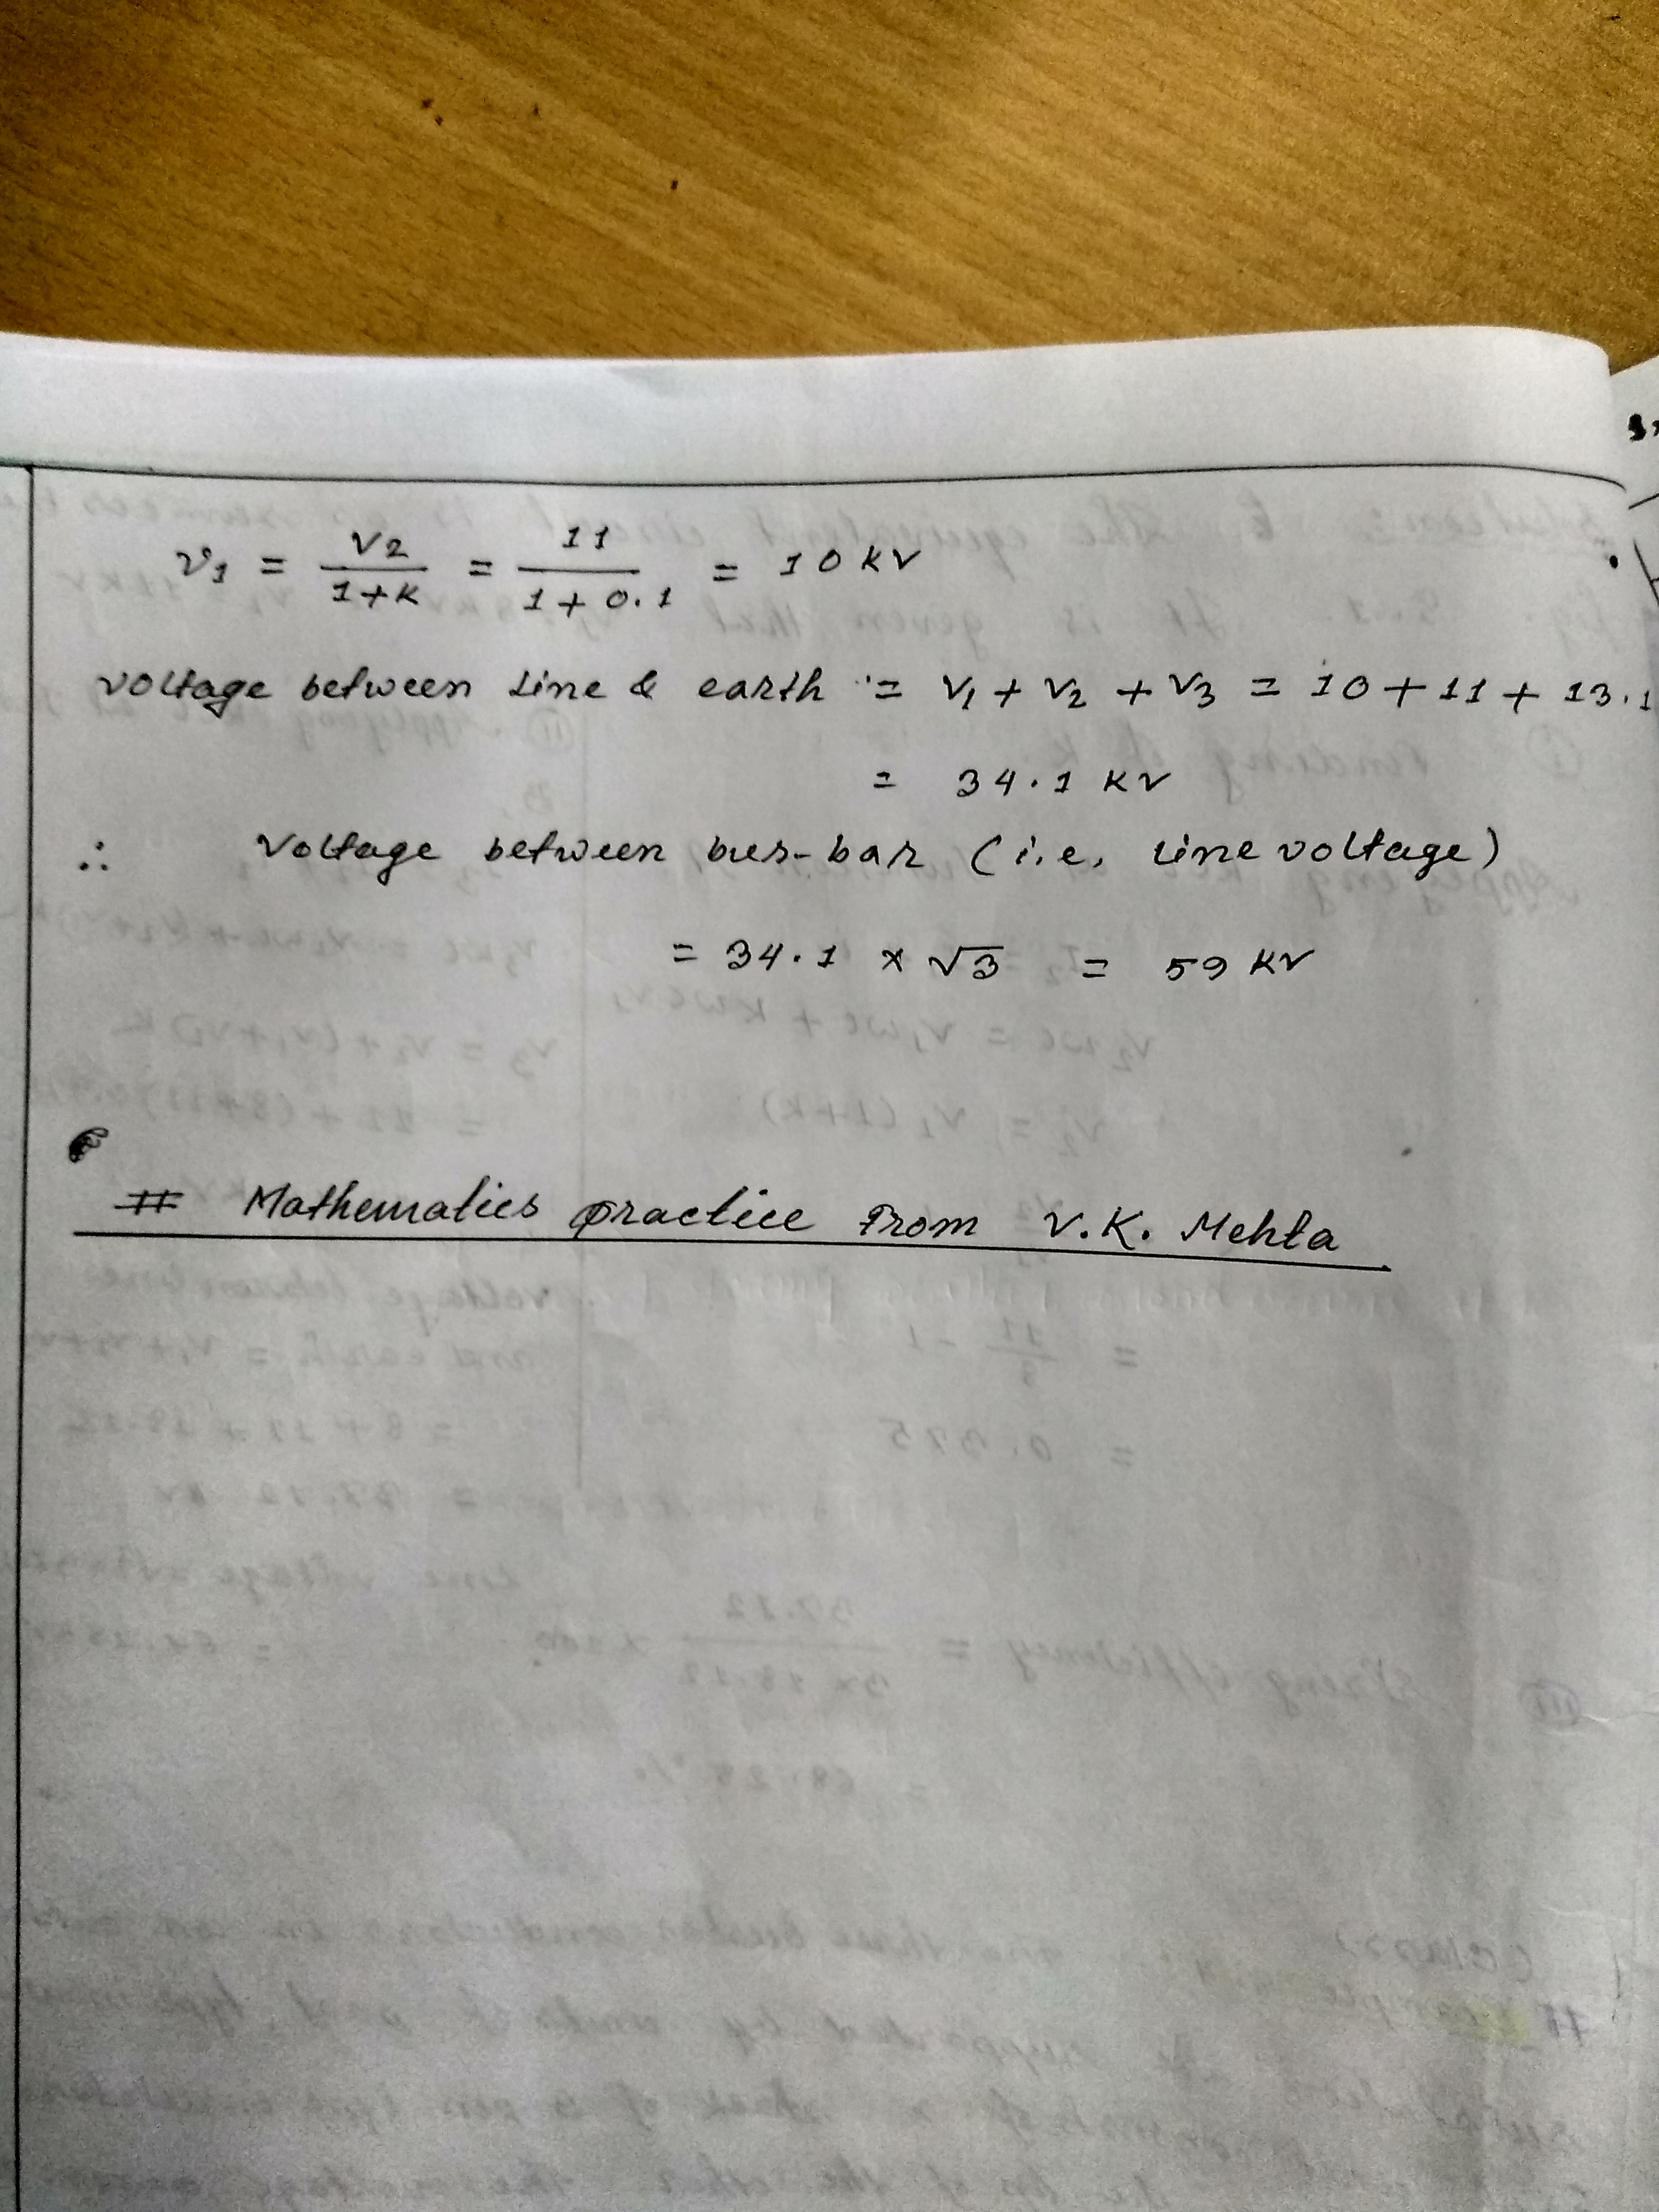 V1 = V2 / 1+K = 11 / 1+0.1 = 10 KV
Voltage between Line & earth = V1 + V2 + V3 = 10+11+ 13.1
= 34.1 KV
∴ Voltage between bus-bar (i.e. Line voltage)
= 34.1 × √3 = 59 KV
# Mathematics practice From V.K. Mehta